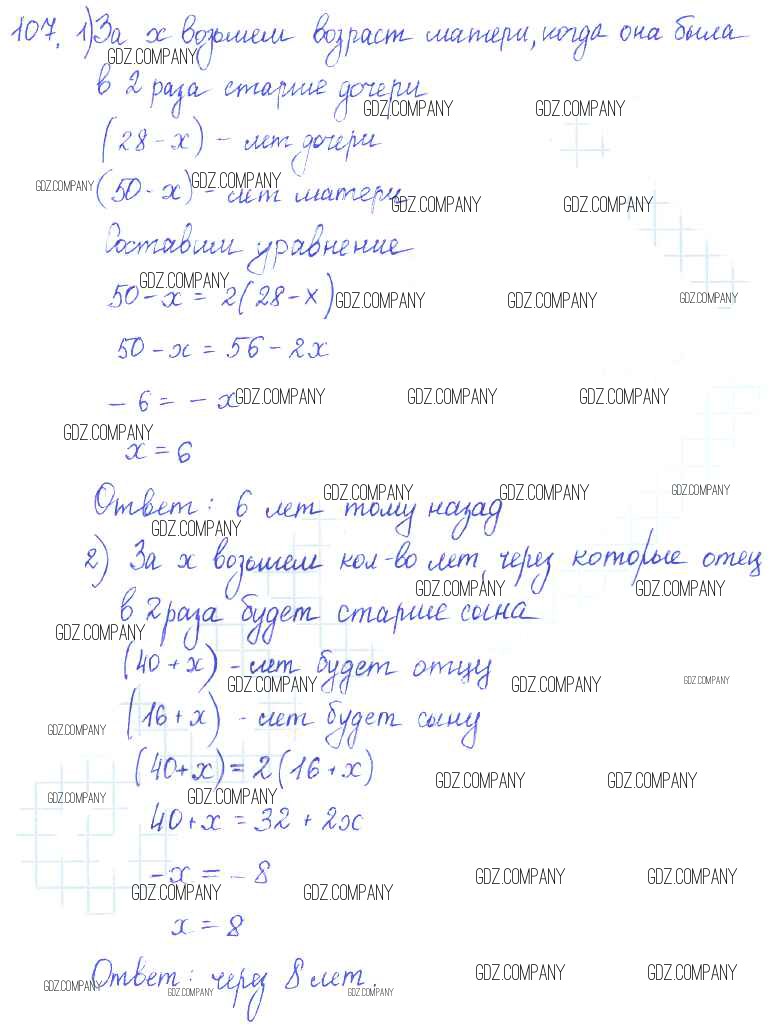 107. 1) За х возьмем возраст матери, когда она была
GDZ.COMPANY
в 2 раза старше дочери
GDZ.COMPANY GDZ.COMPANY
(28 - х) - лет дочери
GDZ.COMPANY (50 - х) GDZ.COMPANY - лет матери
GDZ.COMPANY GDZ.COMPANY
Составим уравнение
GDZ.COMPANY
50 - х = 2(28 - х) GDZ.COMPANY GDZ.COMPANY GDZ.COMPANY
50 - х = 56 - 2х
- 6 = - х GDZ.COMPANY GDZ.COMPANY GDZ.COMPANY
GDZ.COMPANY
х = 6
GDZ.COMPANY GDZ.COMPANY GDZ.COMPANY
Ответ: 6 лет тому назад
GDZ.COMPANY
2) За х возьмем кол-во лет, через которые отец
GDZ.COMPANY GDZ.COMPANY
в 2 раза будет старше сына
GDZ.COMPANY
(40 + х) - лет будет отцу
GDZ.COMPANY GDZ.COMPANY GDZ.COMPANY
(16 + х) - лет будет сыну
GDZ.COMPANY
(40 + х) = 2(16 + х)
GDZ.COMPANY GDZ.COMPANY
GDZ.COMPANY GDZ.COMPANY
40 + х = 32 + 2х
- х = - 8 GDZ.COMPANY GDZ.COMPANY
GDZ.COMPANY GDZ.COMPANY
х = 8
Ответ: через 8 лет. GDZ.COMPANY GDZ.COMPANY
GDZ.COMPANY GDZ.COMPANY GDZ.COMPANY